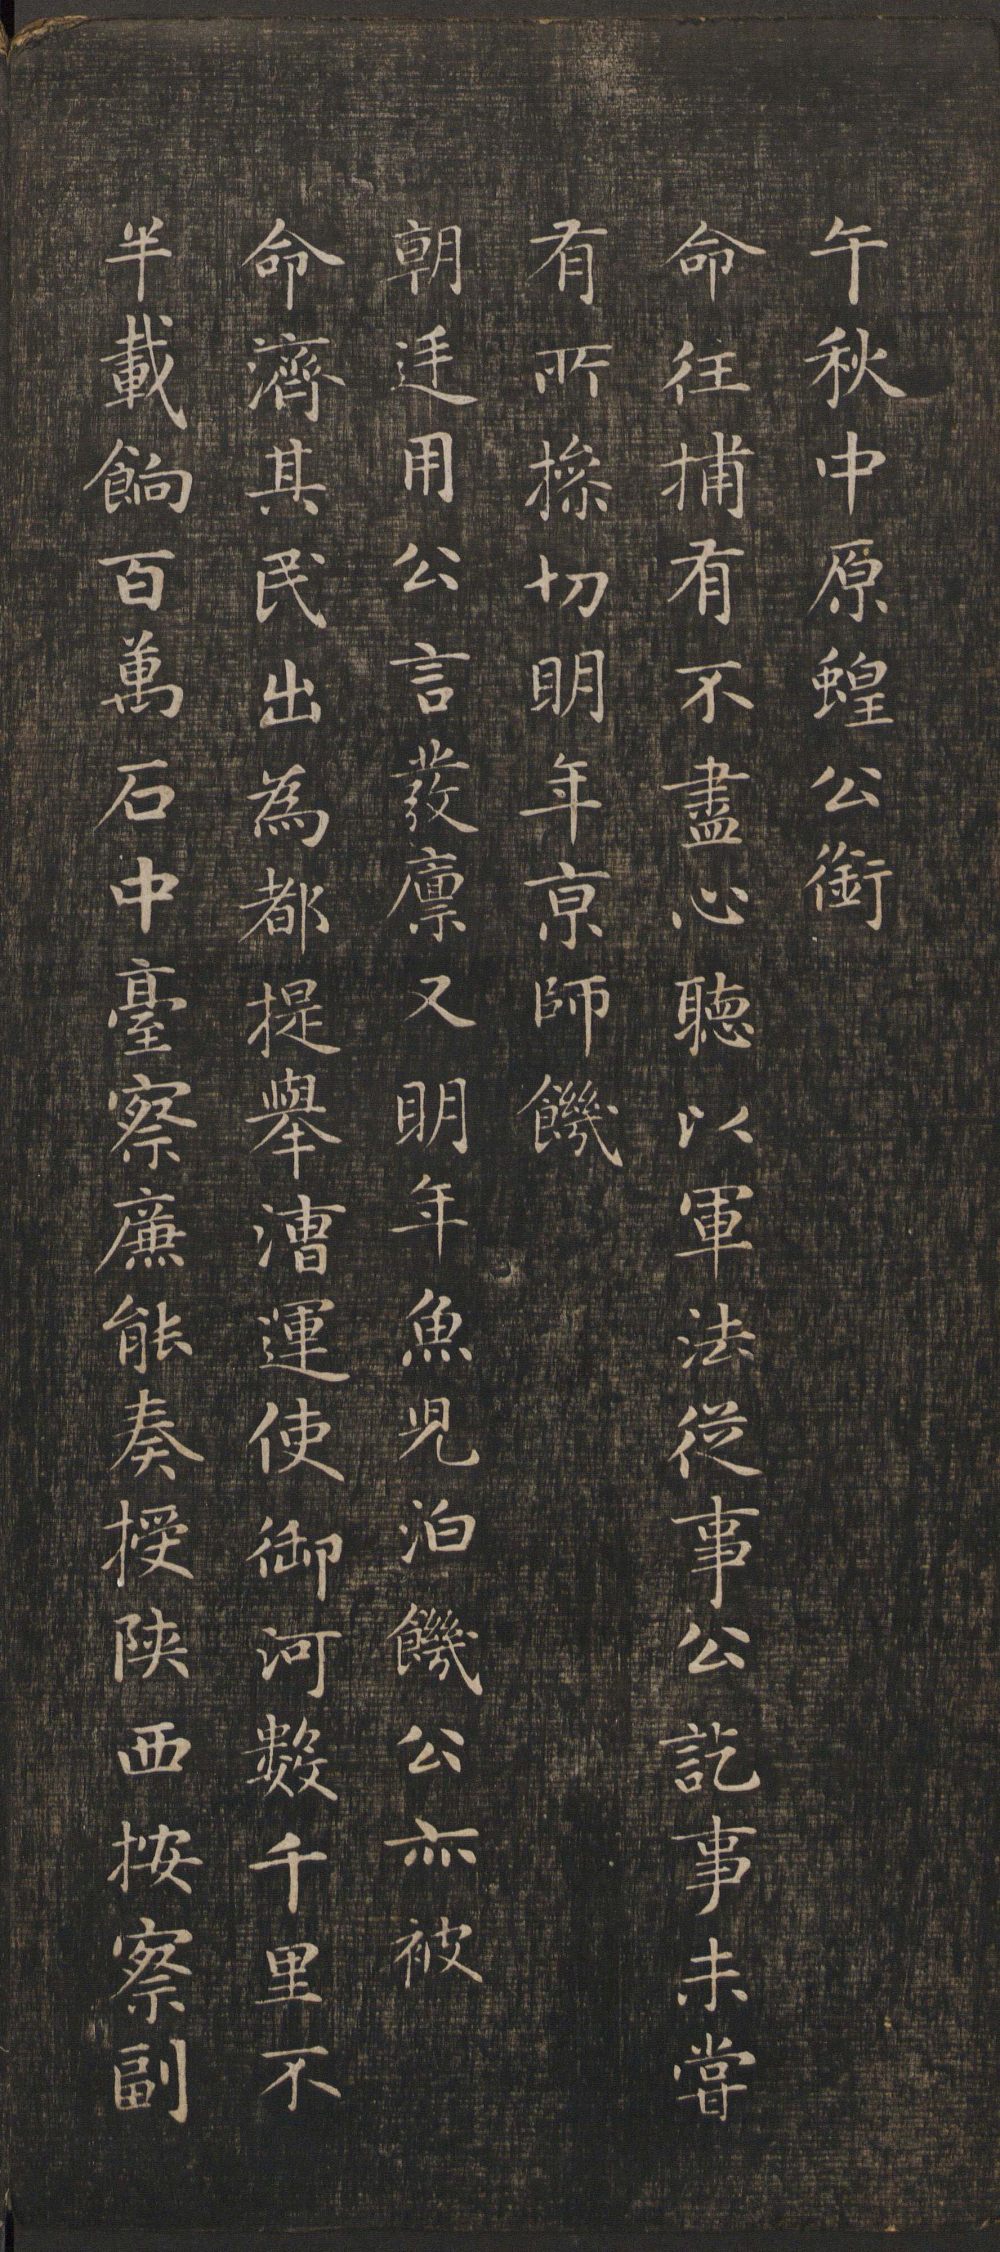 午秋中原蝗公銜
命往捕有不盡心聴以軍法従事公訖事未甞
有所摻切明年亰師饑
朝廷用公言發廪又明年魚児泊饑公亦被
命濟其民出為都提舉漕運使御河數千里不
半載餉百萬石中臺察廉能奏授陝西按察副